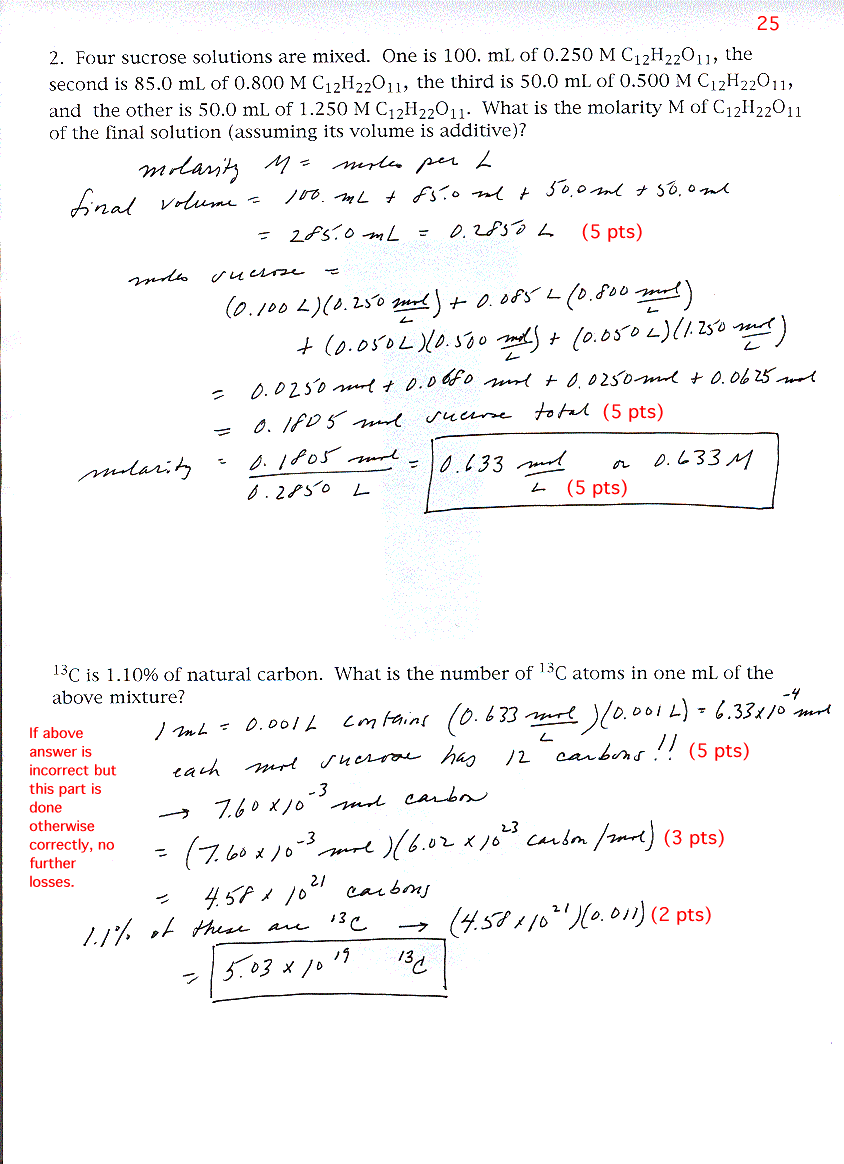 25
2. Four sucrose solutions are mixed. One is 100. mL of 0.250 M C₁₂H₂₂O₁₁, the
second is 85.0 mL of 0.800 M C₁₂H₂₂O₁₁, the third is 50.0 mL of 0.500 M C₁₂H₂₂O₁₁,
and the other is 50.0 mL of 1.250 M C₁₂H₂₂O₁₁. What is the molarity M of C₁₂H₂₂O₁₁
of the final solution (assuming its volume is additive)?
molarity M = moles per L
final volume = 100. mL + 85.0 ml + 50.0 ml + 50.0 ml
= 285.0 mL = 0.2850 L (5 pts)
moles sucrose =
(0.100 L)(0.250 mol/L) + 0.085 L (0.800 mol/L)
+ (0.050L)(0.500 mol/L) + (0.050 L)(1.250 mol/L)
= 0.0250 mol + 0.0680 mol + 0.0250 mol + 0.0625 mol
= 0.1805 mol sucrose total (5 pts)
molarity = 0.1805 mol / 0.2850 L = 0.633 mol/L or 0.633 M (5 pts)
¹³C is 1.10% of natural carbon. What is the number of ¹³C atoms in one mL of the
above mixture?
1 mL = 0.001 L contains (0.633 mol/L)(0.001 L) = 6.33x10⁻⁴ mol
each mol sucrose has 12 carbons!! (5 pts)
→ 7.60 x 10⁻³ mol carbon
= (7.60 x 10⁻³ mol)(6.02 x 10²³ carbon/mol) (3 pts)
= 4.58 x 10²¹ carbons
1.1% of these are ¹³C → (4.58 x 10²¹)(0.011) (2 pts)
= 5.03 x 10¹⁹ ¹³C
If above
answer is
incorrect but
this part is
done
otherwise
correctly, no
further
losses.